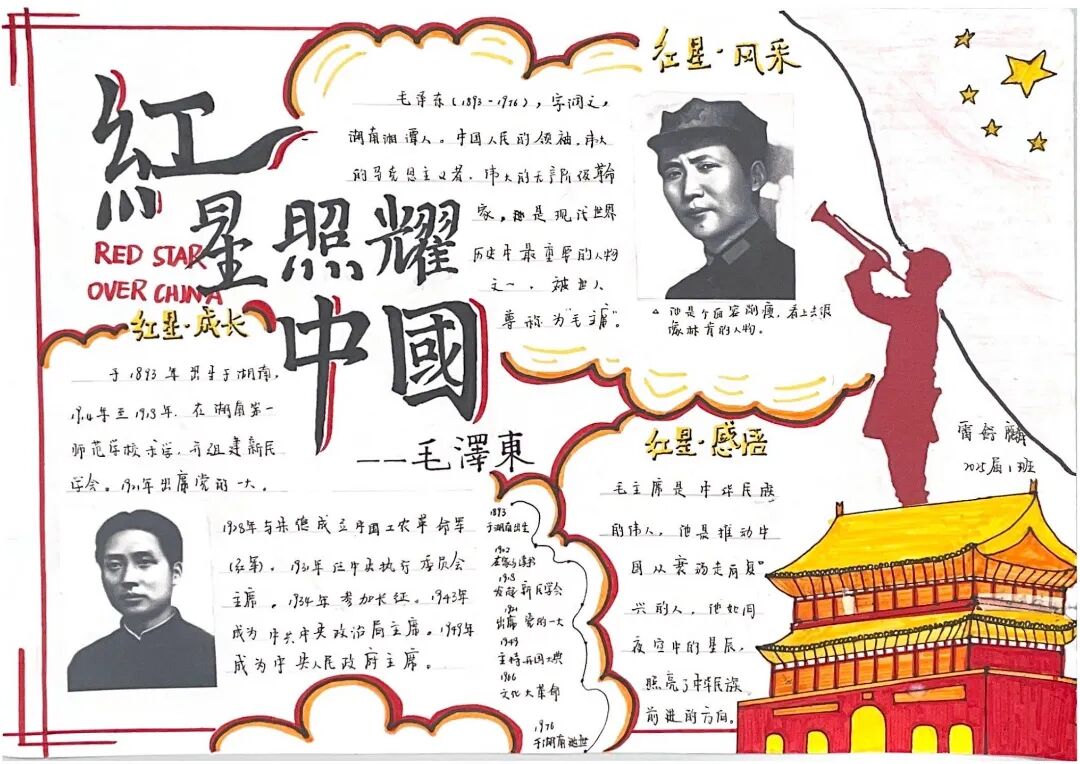 紅
星照耀
中國
RED STAR
OVER CHINA
——毛澤東
红星·风采
毛泽东(1893-1976),字润之,
湖南湘谭人。中国人民的领袖,伟大
的马克思主义者,伟大的无产阶级革命
家,是现代世界
历史中最重要的人物
之一,被世人
尊称为“毛主席”。
△ 他是个面容消瘦,看上去很
像林肯的人物。
红星·成长
于1893年出生于湖南,
1914年至1918年,在湖南第一
师范学校求学,并组建新民
学会。1921年出席党的一大。
1928年与朱德成立中国工农革命军
。1931年任中央执行委员会
主席。1934年参加长征。1943年
成为中共中央政治局主席。1949年
成为中央人民政府主席。
1893
于湖南出生
1902
在家乡读书
1918
发起新民学会
1921
出席党的一大
1949
主持开国大典
1966
文化大革命
1976
于湖南逝世
红星·感悟
毛主席是中华民族
的伟人,他是推动中
国从衰弱走向复
兴的人,他如同
夜空中的星辰,
照亮了中华民族
前进的方向。
2025届1班